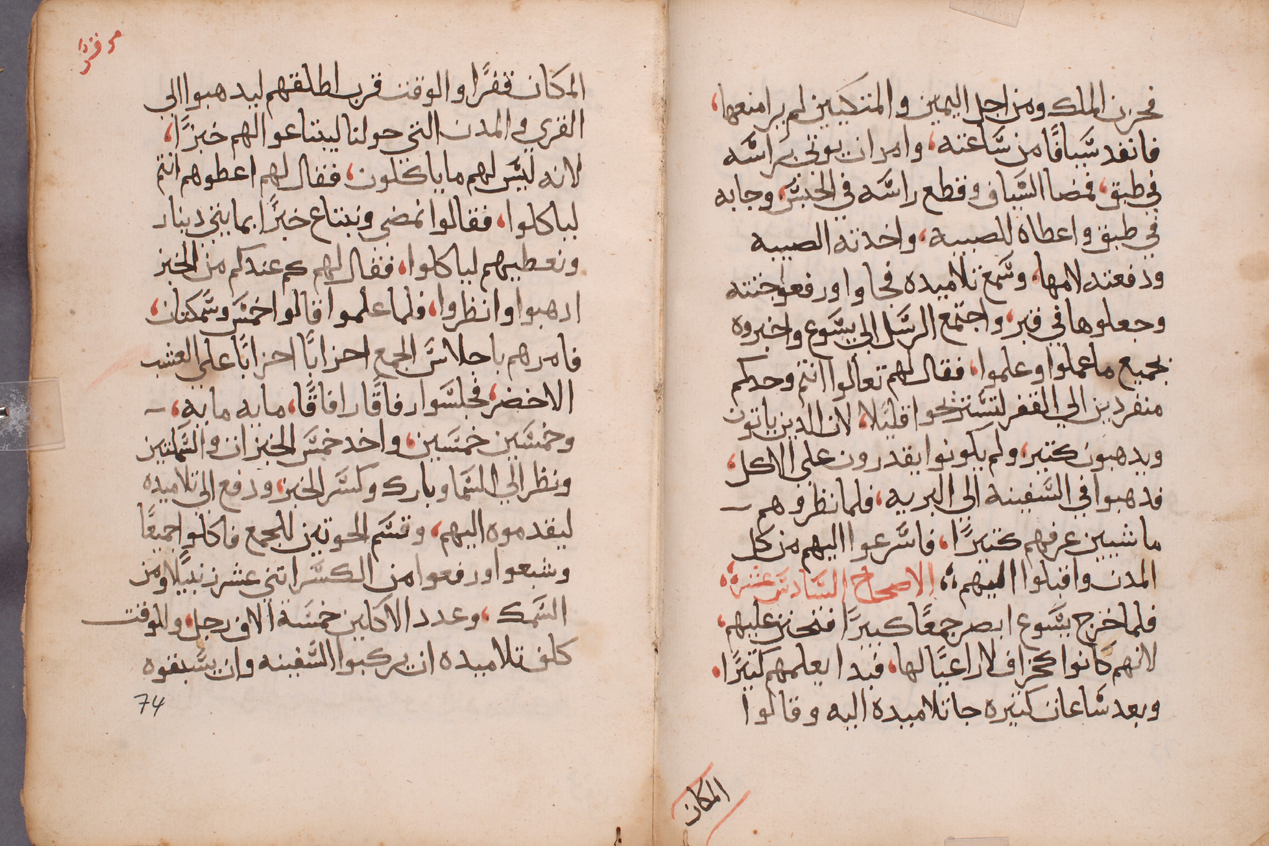 فحزن الملك ومن اجل اليمين والمتكيين لم يرا منعها،
فانفد سيافا من ساعته، وامر ان يوتى براسه
في طبق، فمضا السياف وقطع راسه في الحبس، وجابه
في طبق واعطاه للصبيه، واخدته الصبيه
ودفعته لامها، وسمع تلاميده فجاوا ورفعوا جتته
وجعلوها في قبر، واجتمع الرسل الى يسوع واخبروه
بجميع ما عملوا وعلموا، فقال لهم تعالوا انتم وحدكم
منفردين الي القفر لتستريحوا قليلا، لان الدين ياتون
ويدهبون كتير، ولم يكونوا يقدرون على الاكل،
فدهبوا في السفينه الى البريه، فلما نظروهم
ماشيين عرفهم كتيرًا، فاسرعوا اليهم من كل
المدن واقبلوا اليهم، الاصحاح السادس عشر،
فلما خرج يسوع ابصر جمعًا كبيرًا فتحنن عليهم،
لانهم كانوا كخراف لا راعيًا لها، فبدا يعلمهم كتيرًا،
وبعد ساعات كتيره جا تلاميده اليه وقالوا
المكان
المكان قفرًا والوقت قرب اطلقهم ليدهبوا الي
القرى والمدن التي حولنا ليبتاعوا لهم خبزًا،
لانه ليس لهم ما ياكلون، فقال لهم اعطوهم انتم
لياكلوا، فقالوا نمضي ونبتاع خبزًا بمايتي دينار
ونعطيهم لياكلوا، فقال لهم كم عندكم من الخبز
ادهبوا وانظروا، ولما علموا قالوا خمس وسمكتان،
فامرهم باجلاس الجمع احزابًا احزابًا على العشب
الاخضر، فجلسوا رفاقًا رفاقًا، مايه مايه،
وخمسين خمسين، واخد خمس الخبزات والسمكتين
ونظر الي السما وبارك وكسر الخبز، ودفع الى تلاميده
ليقدموه اليهم، وقسم الحوتين للجمع فاكلوا جميعًا
وشبعوا ورفعوا من الكسر اتني عشر زنبيلا ومن
السمك، وعدد الاكلين خمسه الاف رجل، وللوقت
كلف تلاميده ان يركبوا السفينه وان يسبقوه
74